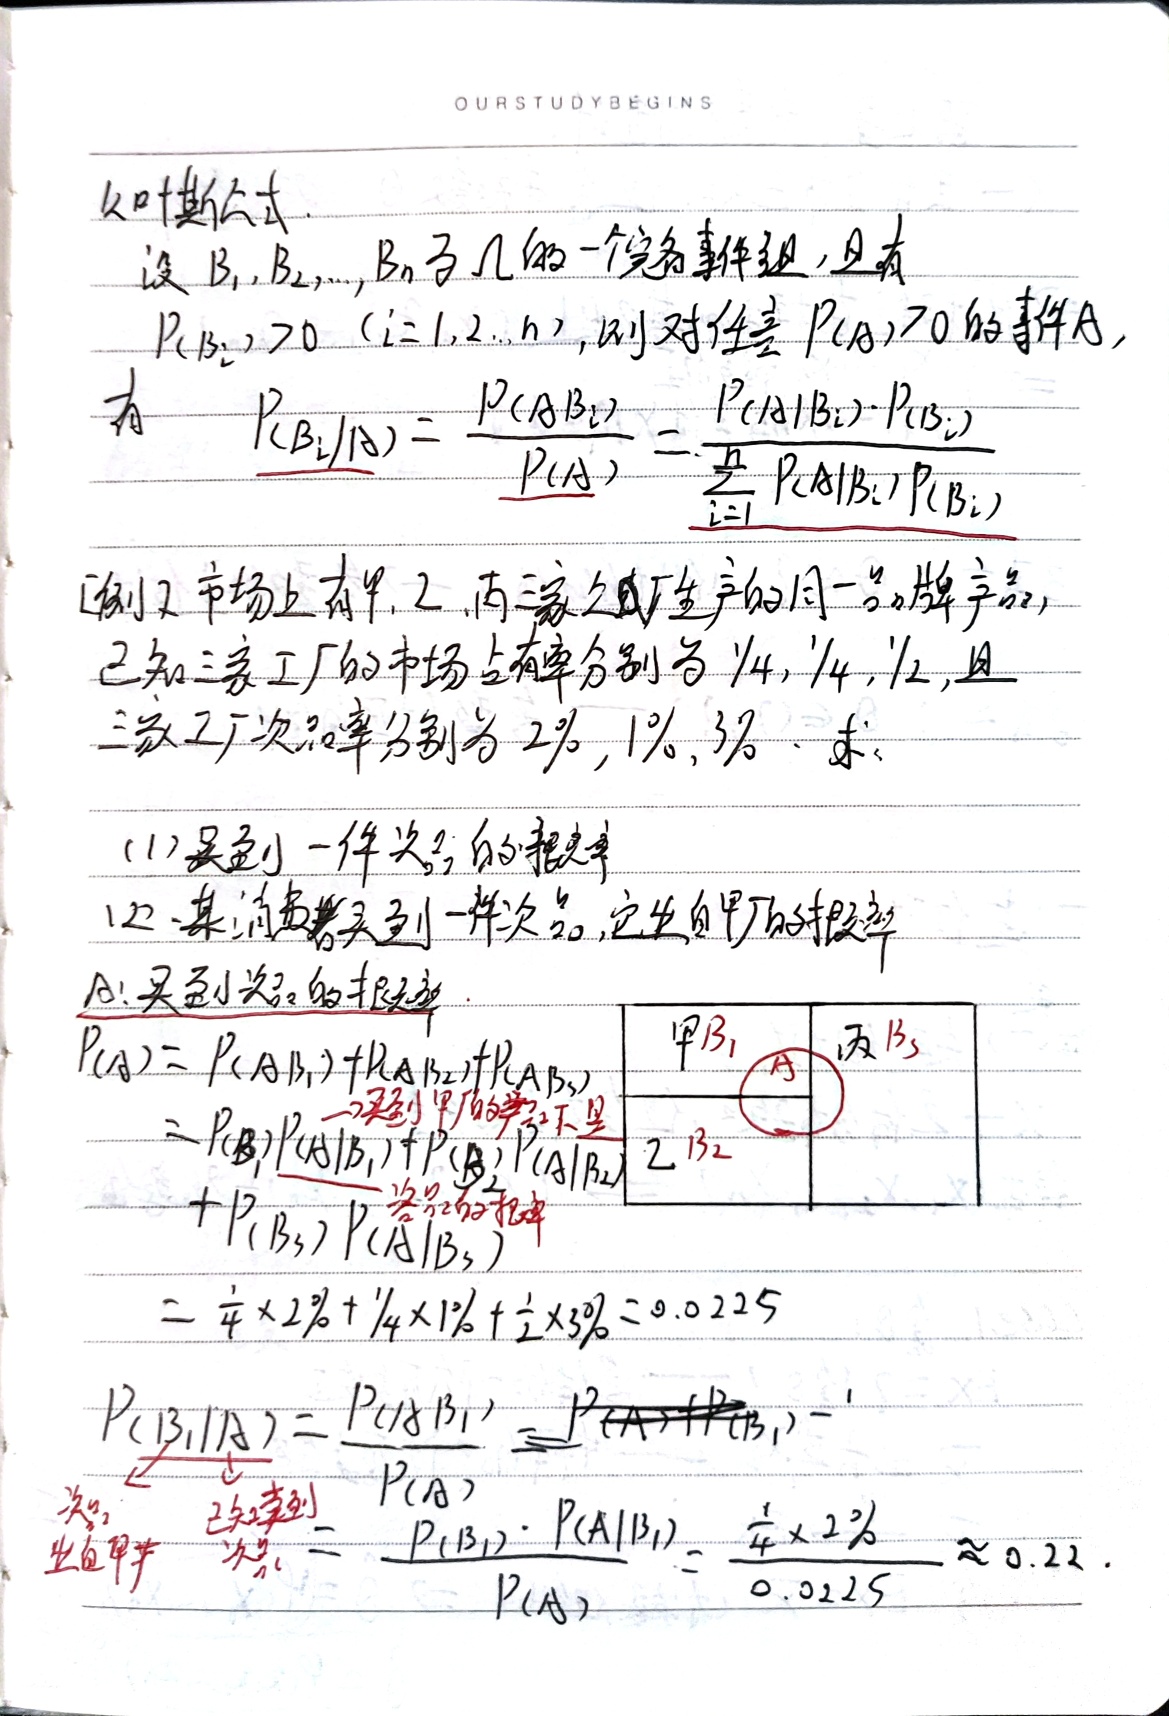 OURSTUDYBEGINS
贝叶斯公式.
设 B₁, B₂, ..., Bn 为 Ω 的一个完备事件组, 且有
P(Bi) > 0 (i=1,2...n), 则对任意 P(A) > 0 的事件A,
有 P(Bi|A) = P(ABi) / P(A) = P(A|Bi)·P(Bi) / ∑(i=1 → n) P(A|Bi) P(Bi)
[例] 市场上有甲、乙、丙三家工厂生产的同一品牌产品,
已知三家工厂的市场占有率分别为 1/4, 1/4, 1/2, 且
三家工厂次品率分别为 2%, 1%, 3%. 求:
(1) 买到一件次品的概率
(2) 某消费者买到一件次品,它出自甲厂的概率
A: 买到次品的概率.
甲B₁ 丙B₃
A
乙 B₂
P(A) = P(AB₁) + P(AB₂) + P(AB₃)
→买到甲厂的
= P(B₁)P(A|B₁) + P(B₂)P(A|B₂)
次品的概率
+ P(B₃) P(A|B₃)
= 1/4 × 2% + 1/4 × 1% + 1/2 × 3% = 0.0225
P(B₁|A) = P(AB₁) / P(A)
次品 已知拿到
出自甲 次品
= P(B₁)·P(A|B₁) / P(A) = 1/4 × 2% / 0.0225 ≈ 0.22.